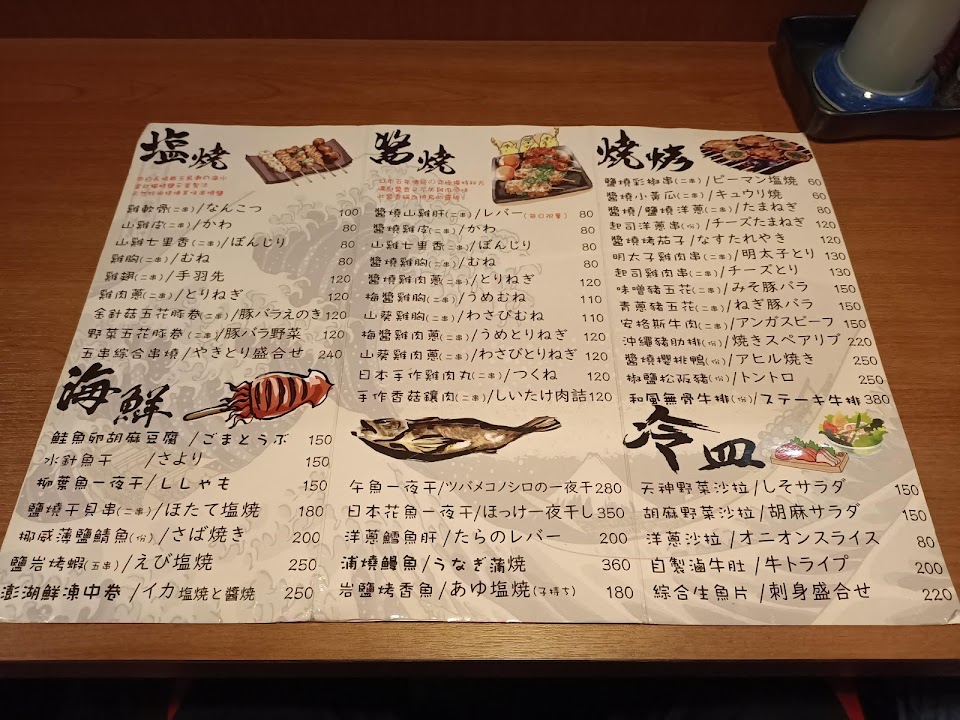 塩燒
雞軟骨(二串)/なんこつ 100
山雞皮(二串)/かわ 80
山雞七里香(二串)/ぼんじり 80
雞胸(二串)/むね 80
雞翅(二串)/手羽先 120
雞肉蔥(二串)/とりねぎ 120
金針菇五花豚卷(二串)/豚バラえのき 120
野菜五花豚卷(二串)/豚バラ野菜 120
五串綜合串燒/やきとり盛合せ 240
海鮮
鮭魚卵胡麻豆腐/ごまとうふ 150
水針魚干/さより 150
柳葉魚一夜干/ししゃも 150
鹽燒干貝串(二串)/ほたて塩焼 180
挪威薄鹽鯖魚(份)/さば焼き 200
鹽岩烤蝦(五串)/えび塩焼 250
澎湖鮮凍中卷/イカ塩焼と醬焼 250
醬燒
醬燒山雞肝(二串)/レバー(每日限量) 80
醬燒雞皮(二串)/かわ 80
山雞七里香(二串)/ぼんじり 80
醬燒雞胸(二串)/むね 80
醬燒雞肉蔥(二串)/とりねぎ 120
梅醬雞胸(二串)/うめむね 110
山葵雞胸(二串)/わさびむね 110
梅醬雞肉蔥(二串)/うめとりねぎ 120
山葵雞肉蔥(二串)/わさびとりねぎ 120
日本手作雞肉丸(二串)/つくね 120
手作香菇鑲肉(二串)/しいたけ肉詰 120
午魚一夜干/ツバメコノシロの一夜干 280
日本花魚一夜干/ほっけ一夜干し 350
洋蔥鱈魚肝/たらのレバー 200
浦燒鰻魚/うなぎ蒲焼 360
岩鹽烤香魚/あゆ塩焼(子持ち) 180
燒烤
鹽燒彩椒串(二串)/ピーマン塩焼 60
鹽燒小黃瓜(二串)/キュウリ焼 60
醬燒/鹽燒洋蔥(二串)/たまねぎ 80
起司洋蔥串(份)/チーズたまねぎ 120
醬燒烤茄子/なすたれやき 120
明太子雞肉串(二串)/明太子とり 130
起司雞肉串(二串)/チーズとり 130
味噌豬五花(二串)/みそ豚バラ 150
青蔥豬五花(二串)/ねぎ豚バラ 150
安格斯牛肉(二串)/アンガスビーフ 150
沖繩豬肋排(份)/焼きスペアリブ 220
醬燒櫻桃鴨(份)/アヒル焼き 250
椒鹽松阪豬(份)/トントロ 250
和風無骨牛排(份)/ステーキ牛排 380
冷皿
天神野菜沙拉/しそサラダ 150
胡麻野菜沙拉/胡麻サラダ 150
洋蔥沙拉/オニオンスライス 80
自製滷牛肚/牛トライプ 200
綜合生魚片/刺身盛合せ 220